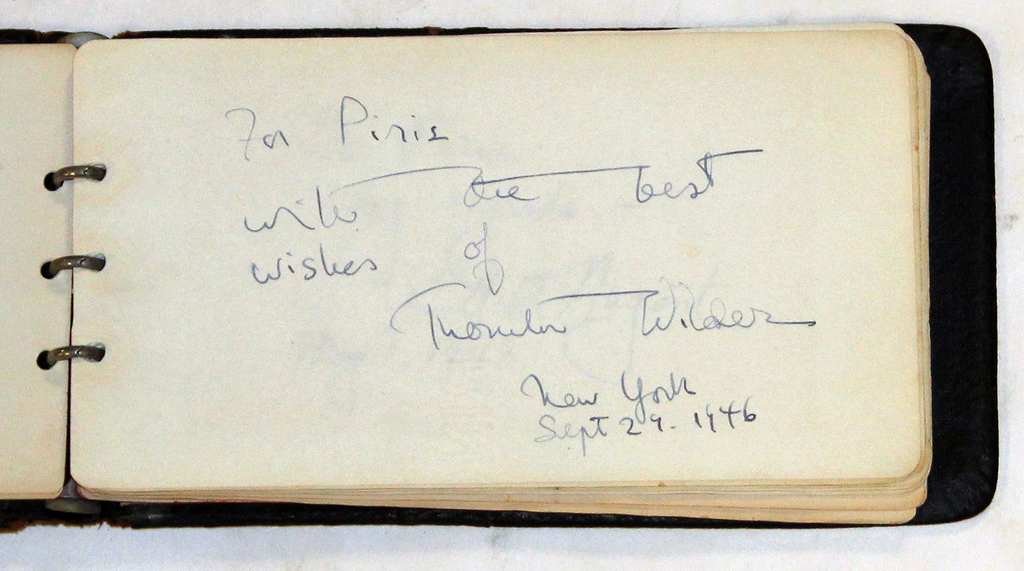 For Piris
with the best
wishes of
Thornton Wilder
New York
Sept 29. 1946